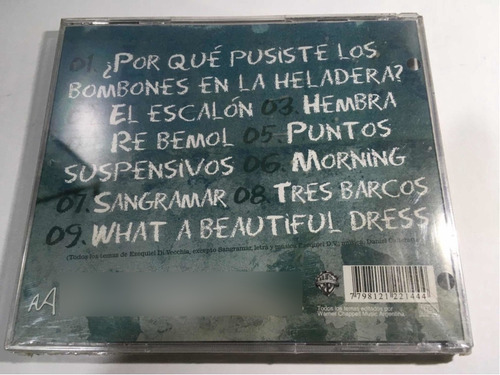 01. ¿POR QUÉ PUSISTE LOS
BOMBONES EN LA HELADERA?
EL ESCALÓN 03. HEMBRA
RE BEMOL 05. PUNTOS
SUSPENSIVOS 06. MORNING
07. SANGRAMAR 08. TRES BARCOS
09. WHAT A BEAUTIFUL DRESS
(Todos los temas de Ezequiel Di Vecchia, excepto Sangramar, letra y música Ezequiel D.V., Daniel
AA
7 798121 221444
Todos los temas editados por
Warner Chappell Music Argentina